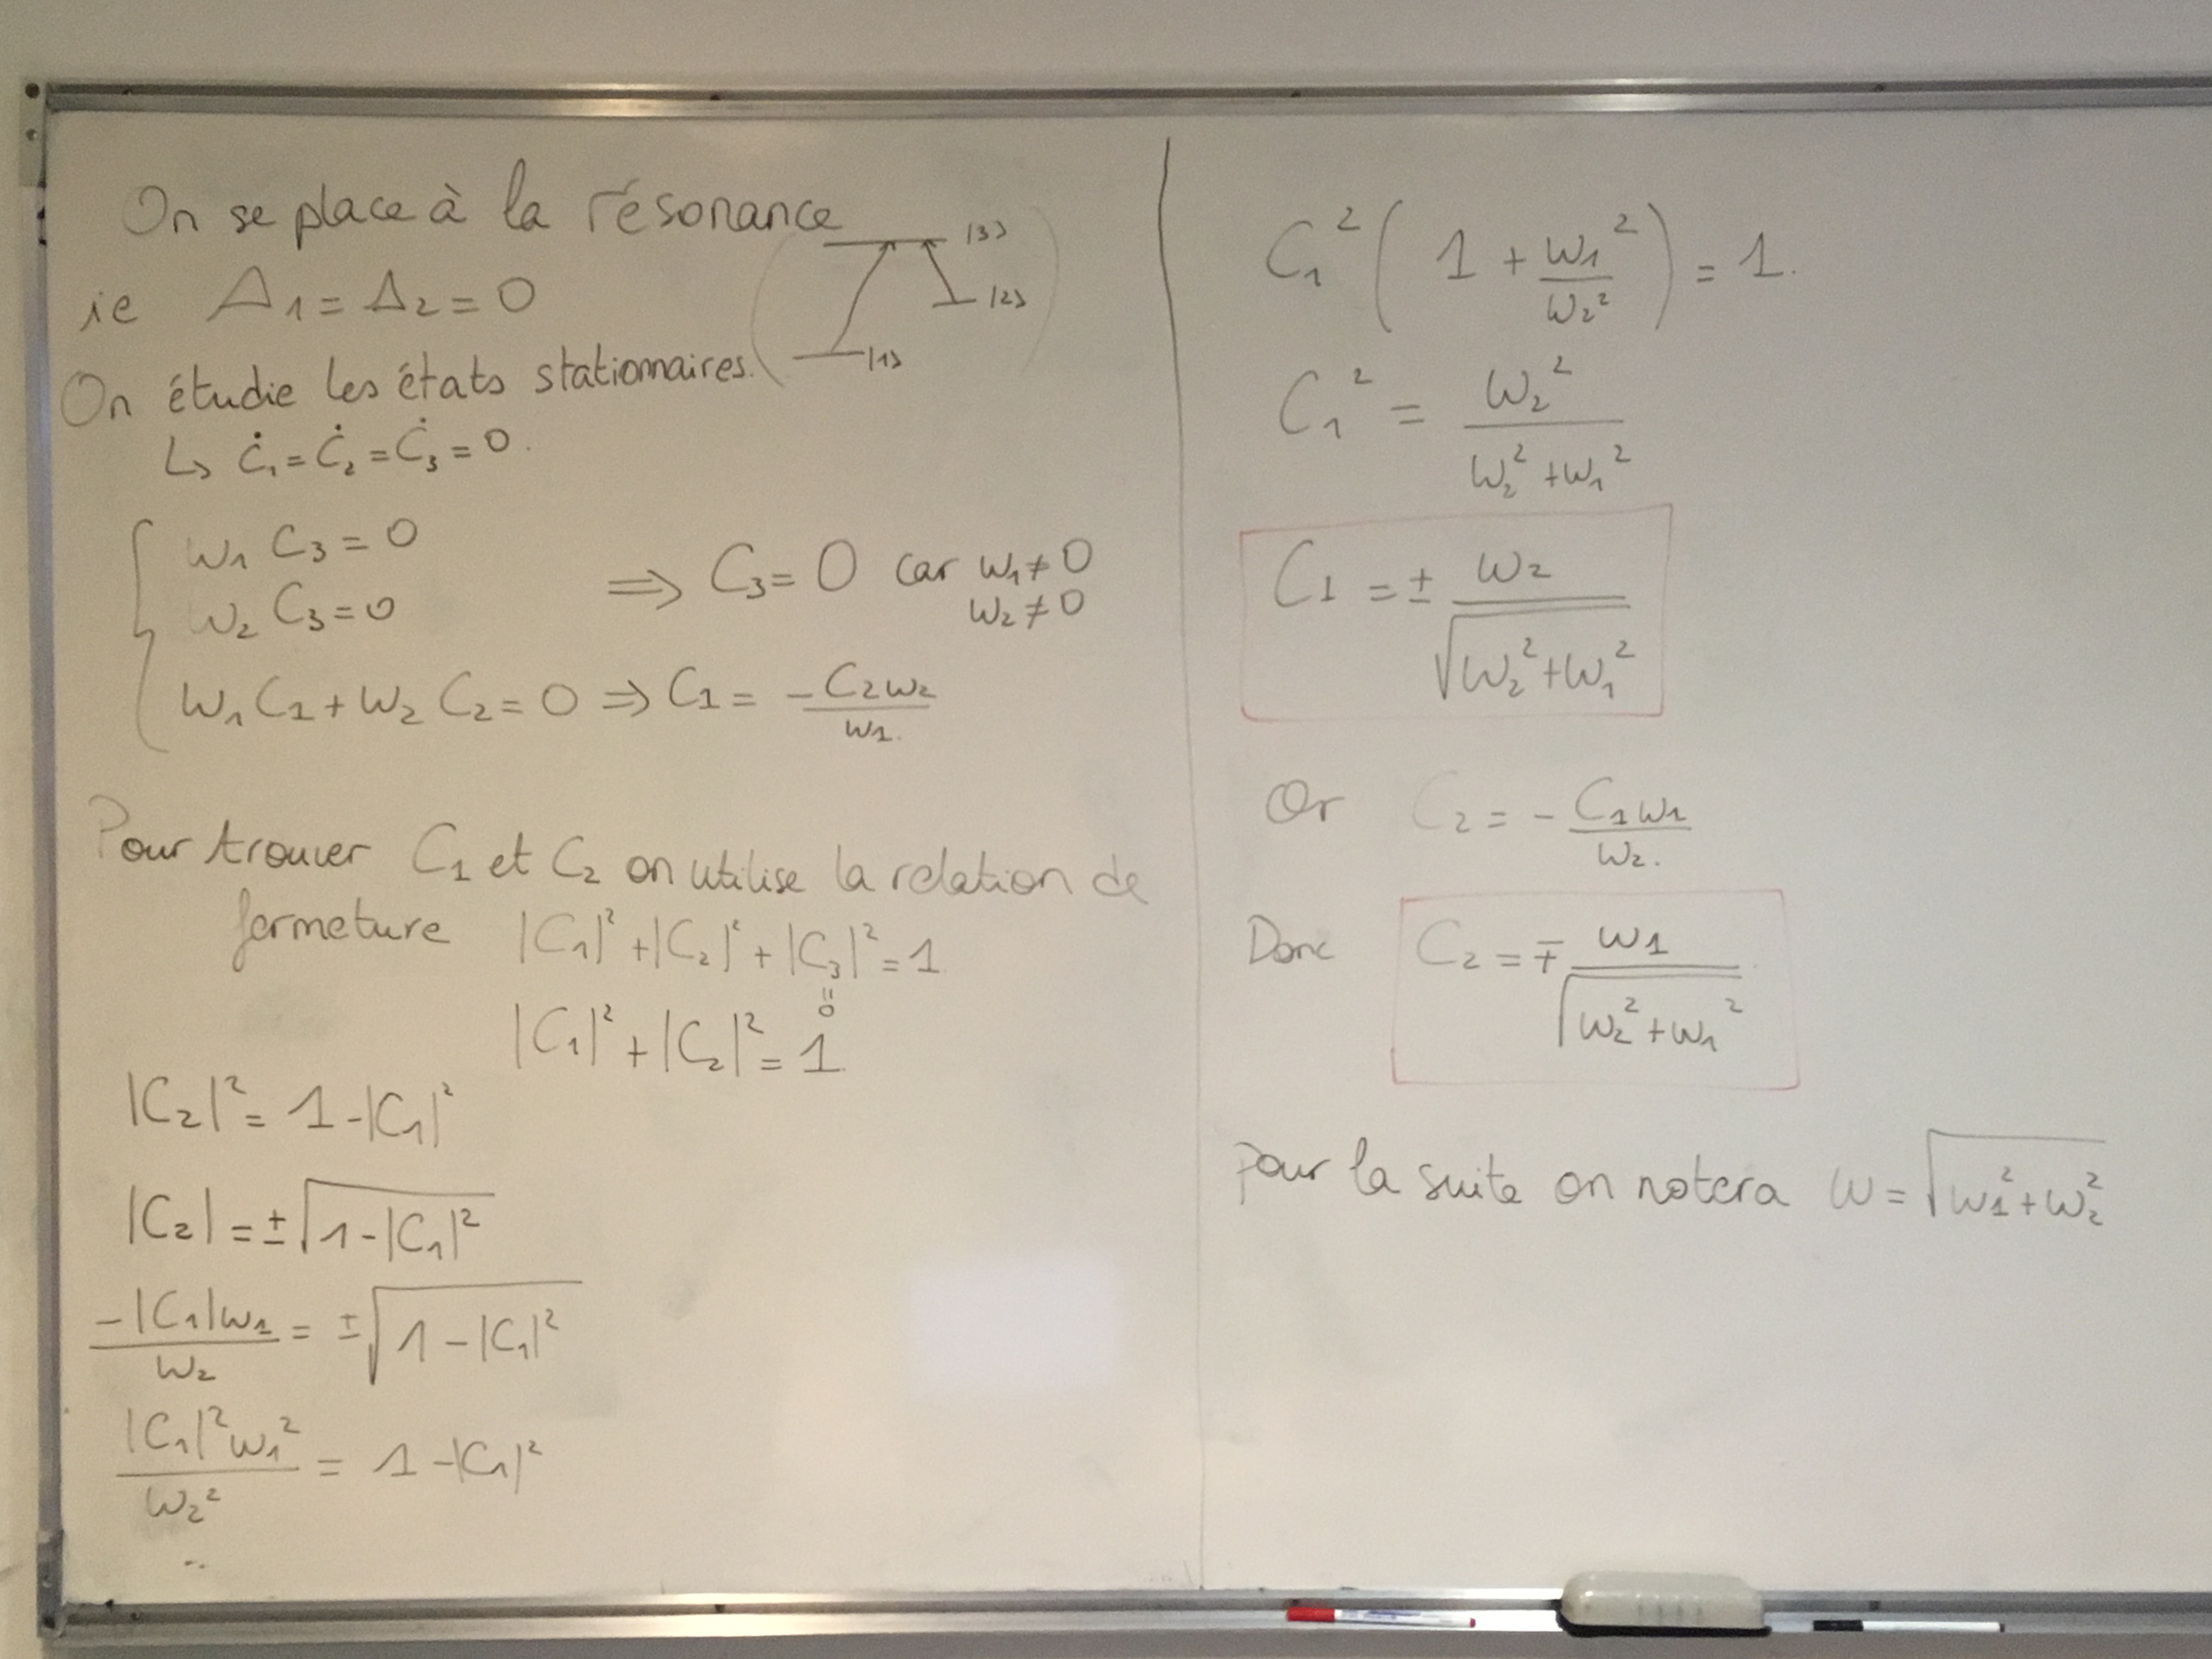 On se place à la résonance
|3>
|2>
|1>
ie Δ₁ = Δ₂ = 0
On étudie les états stationnaires.
↳ Ċ₁ = Ċ₂ = Ċ₃ = 0.
ω₁ C₃ = 0
ω₂ C₃ = 0
⟹ C₃ = 0 car ω₁ ≠ 0
ω₂ ≠ 0
ω₁ C₁ + ω₂ C₂ = 0 ⇒ C₁ = -C₂ω₂ / ω₁.
Pour trouver C₁ et C₂ on utilise la relation de
fermeture |C₁|² + |C₂|² + |C₃|² = 1
= 0
|C₁|² + |C₂|² = 1.
|C₂|² = 1 - |C₁|²
|C₂| = ± √(1 - |C₁|²)
-|C₁|ω₁ / ω₂ = ± √(1 - |C₁|²)
|C₁|² ω₁² / ω₂² = 1 - |C₁|²
C₁² (1 + ω₁² / ω₂²) = 1.
C₁² = ω₂² / (ω₂² + ω₁²)
C₁ = ± ω₂ / √(ω₂² + ω₁²)
Or C₂ = - C₁ω₁ / ω₂.
Donc C₂ = ∓ ω₁ / √(ω₂² + ω₁²)
Pour la suite on notera ω = √(ω₁² + ω₂²)